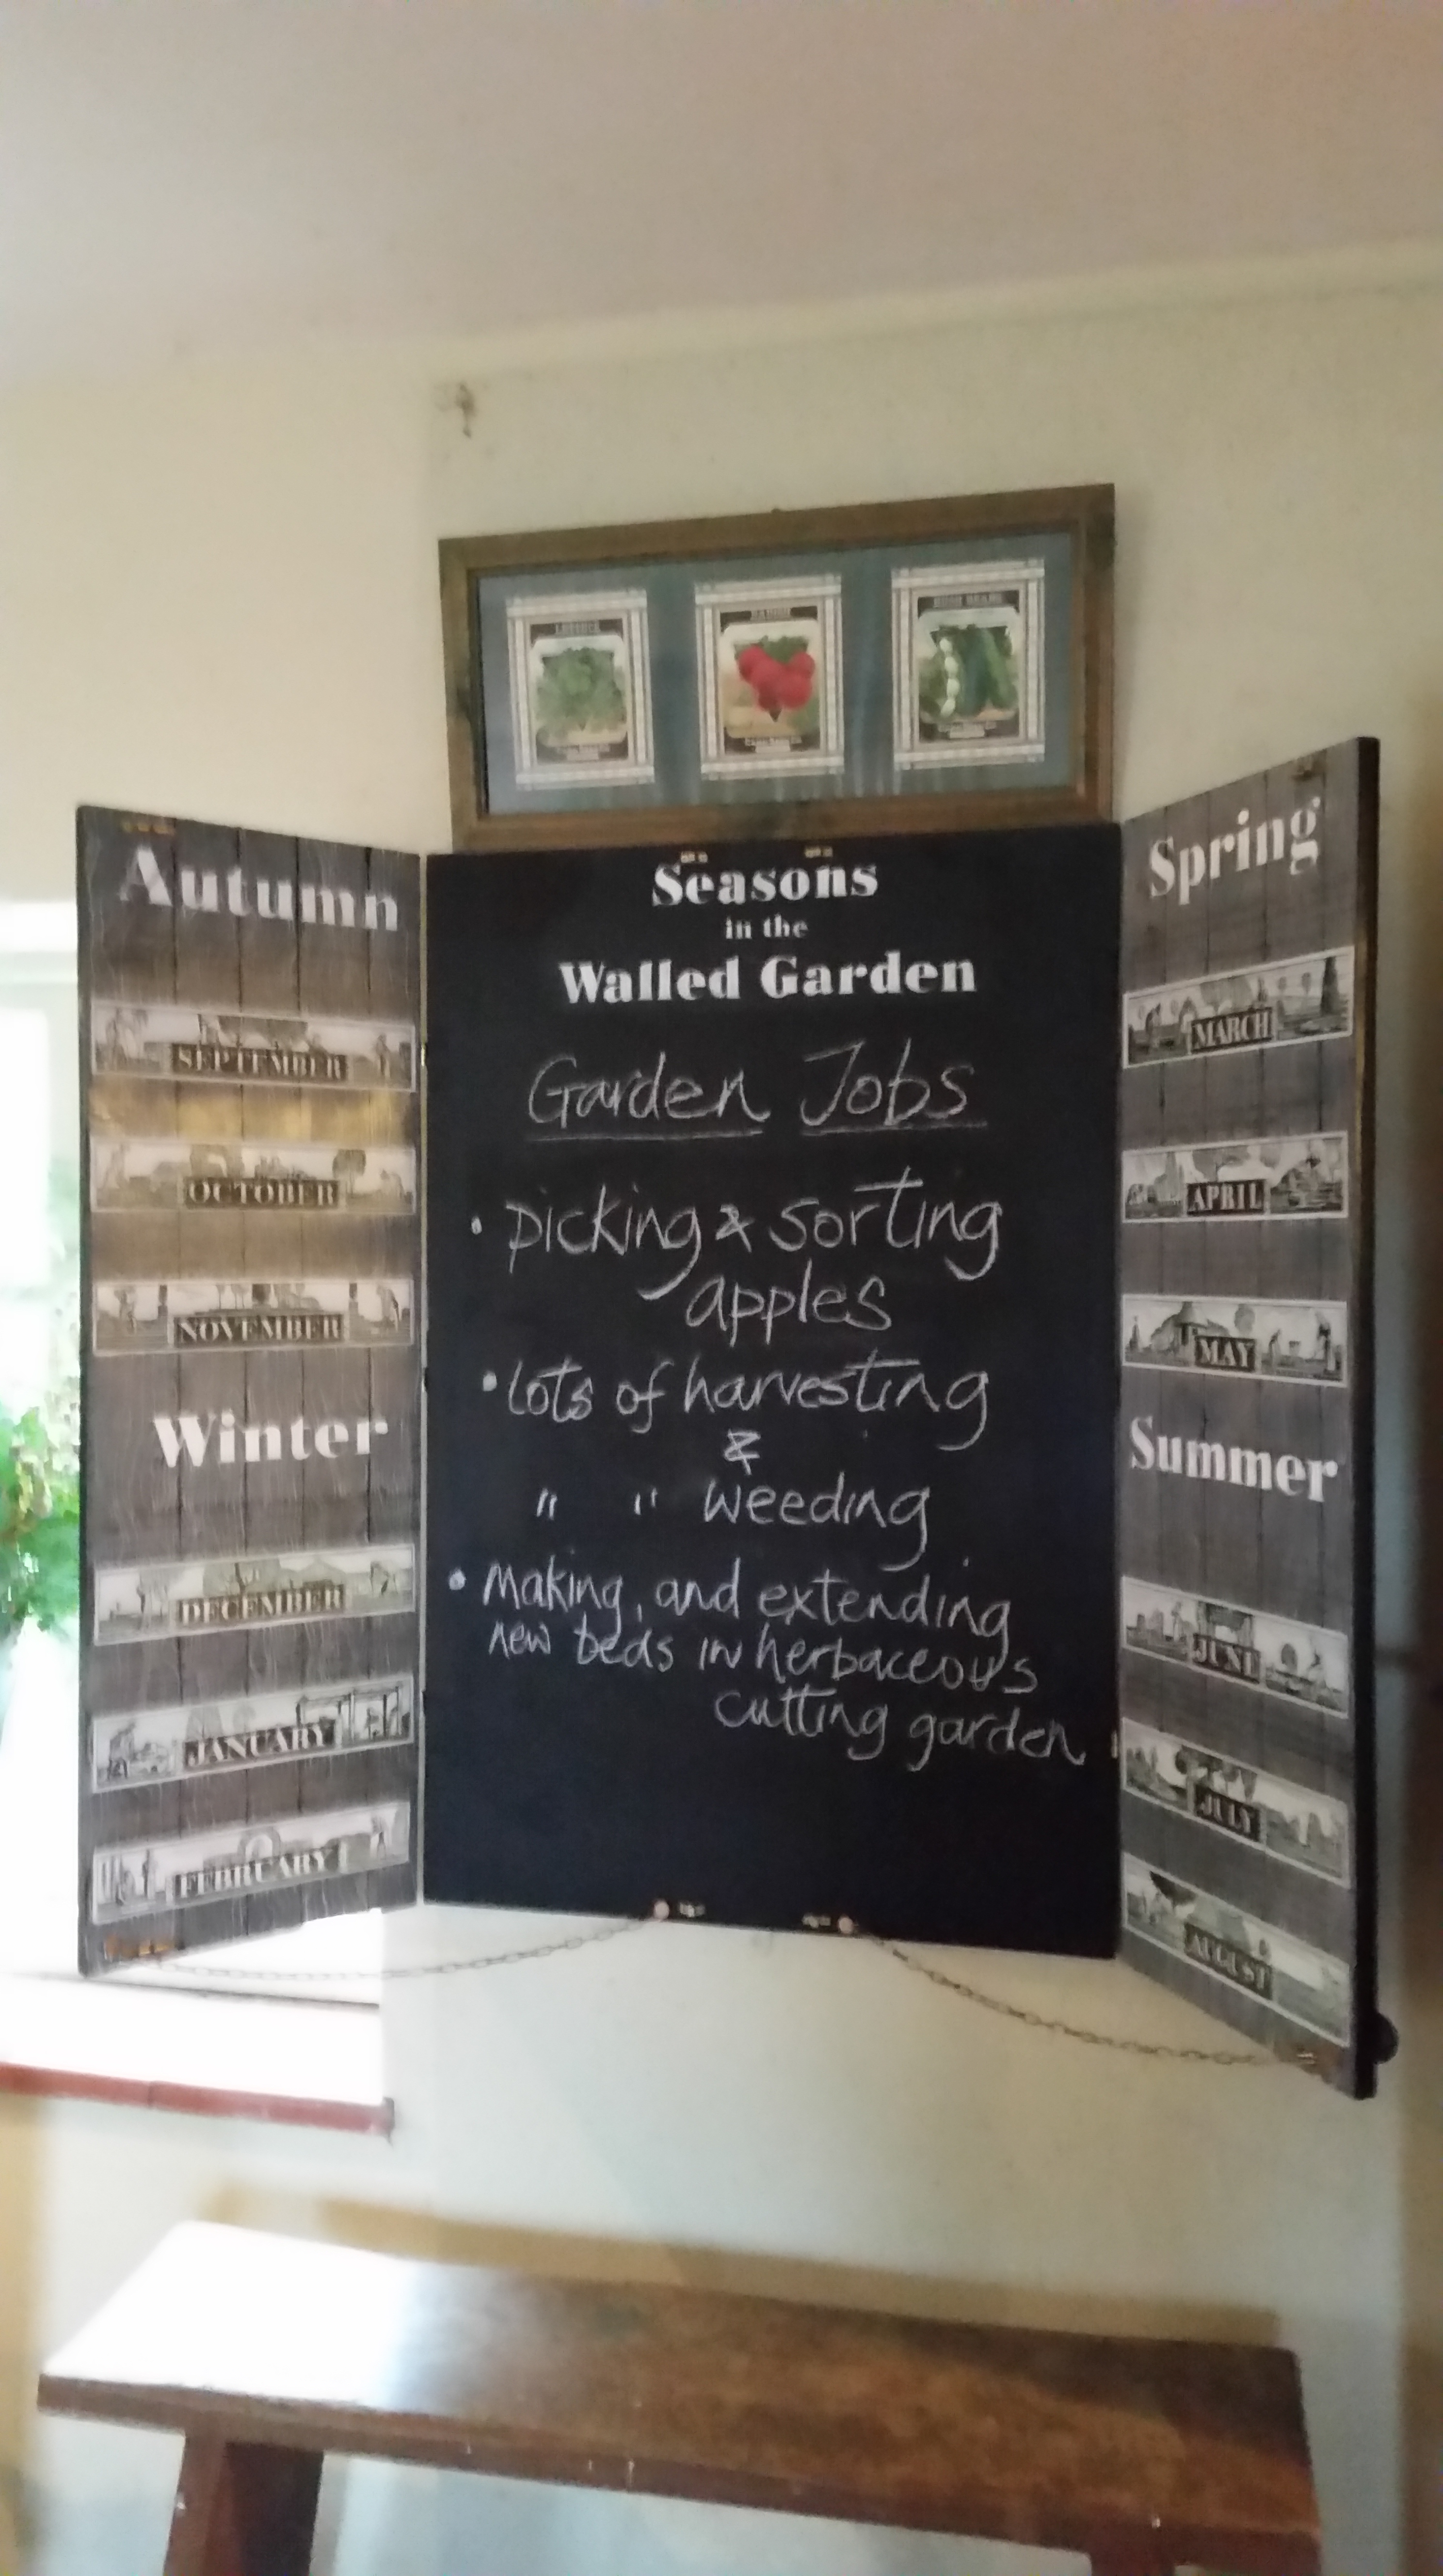 LETTUCE
RADISH
BUSH BEANS
Autumn
SEPTEMBER
OCTOBER
NOVEMBER
Winter
DECEMBER
JANUARY
FEBRUARY
Seasons
in the
Walled Garden
Garden Jobs
• picking & sorting
apples
• lots of harvesting
&
" " weeding
• Making, and extending
new beds in herbaceous
cutting garden
Spring
MARCH
APRIL
MAY
Summer
JUNE
JULY
AUGUST